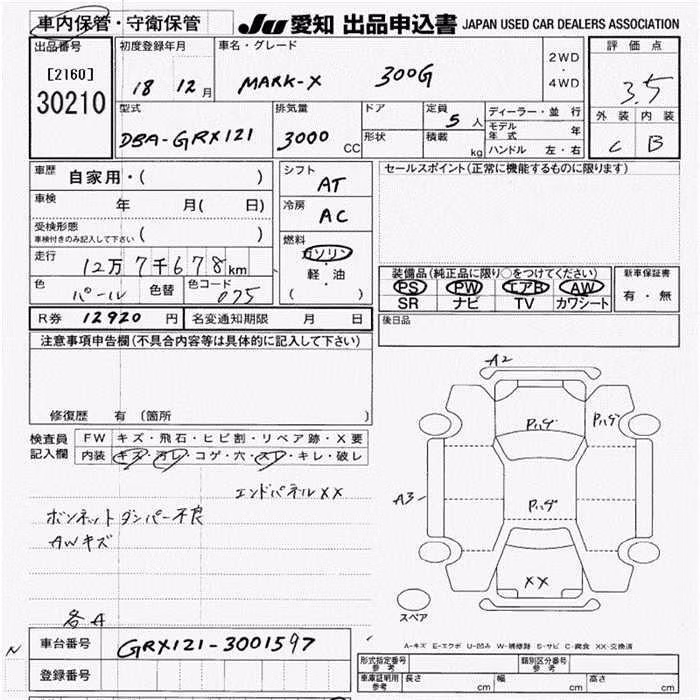 車内保管・守衛保管 JU 愛知 出品申込書 JAPAN USED CAR DEALERS ASSOCIATION
出品番号 [2160] 30210
初度登録年月 18 12月
車名・グレード MARK-X 300G
2WD・4WD
評価点 3.5
外装 内装
C B
型式 DBA-GRX121
排気量 3000 CC
ドア 形状
定員 5人
積載 kg
ディーラー・並行
モデル年式 年
ハンドル 左・右
車歴 自家用・( )
車検 年 月( 日)
受検形態 ( )
車検付きのみ記入して下さい
走行 12万7千678km
色 パール 色替 色コード 075
シフト AT
冷房 AC
燃料 ガソリン・軽・油
( )
セールスポイント(正常に機能するものに限ります)
装備品(純正品に限り○をつけてください)
PS PW エアB AW
SR ナビ TV カワシート
新車保証書 有・無
R券 12920円 名変通知期限 月 日
後日品
注意事項申告欄(不具合内容等は具体的に記入して下さい)
修復歴 有 〔箇所 〕
検査員記入欄
FW キズ・飛石・ヒビ割・リペア跡・X要
内装 キズ・汚レ・コゲ・穴・スレ・キレ・破レ
エンドパネルXX
ボンネットダンパー不良
AWキズ
各A
A2
Pハゲ
Pハゲ
A3
Pハゲ
XX
スペア
N
車台番号 GRX121-3001597
登録番号
A-キズ E-エクボ U-凹み W-補修跡 S-サビ C-腐食 XX-交換済
形式指定番号 参考 類別区分番号 参考
車庫証明用 参考 長さ cm 幅 cm 高さ cm